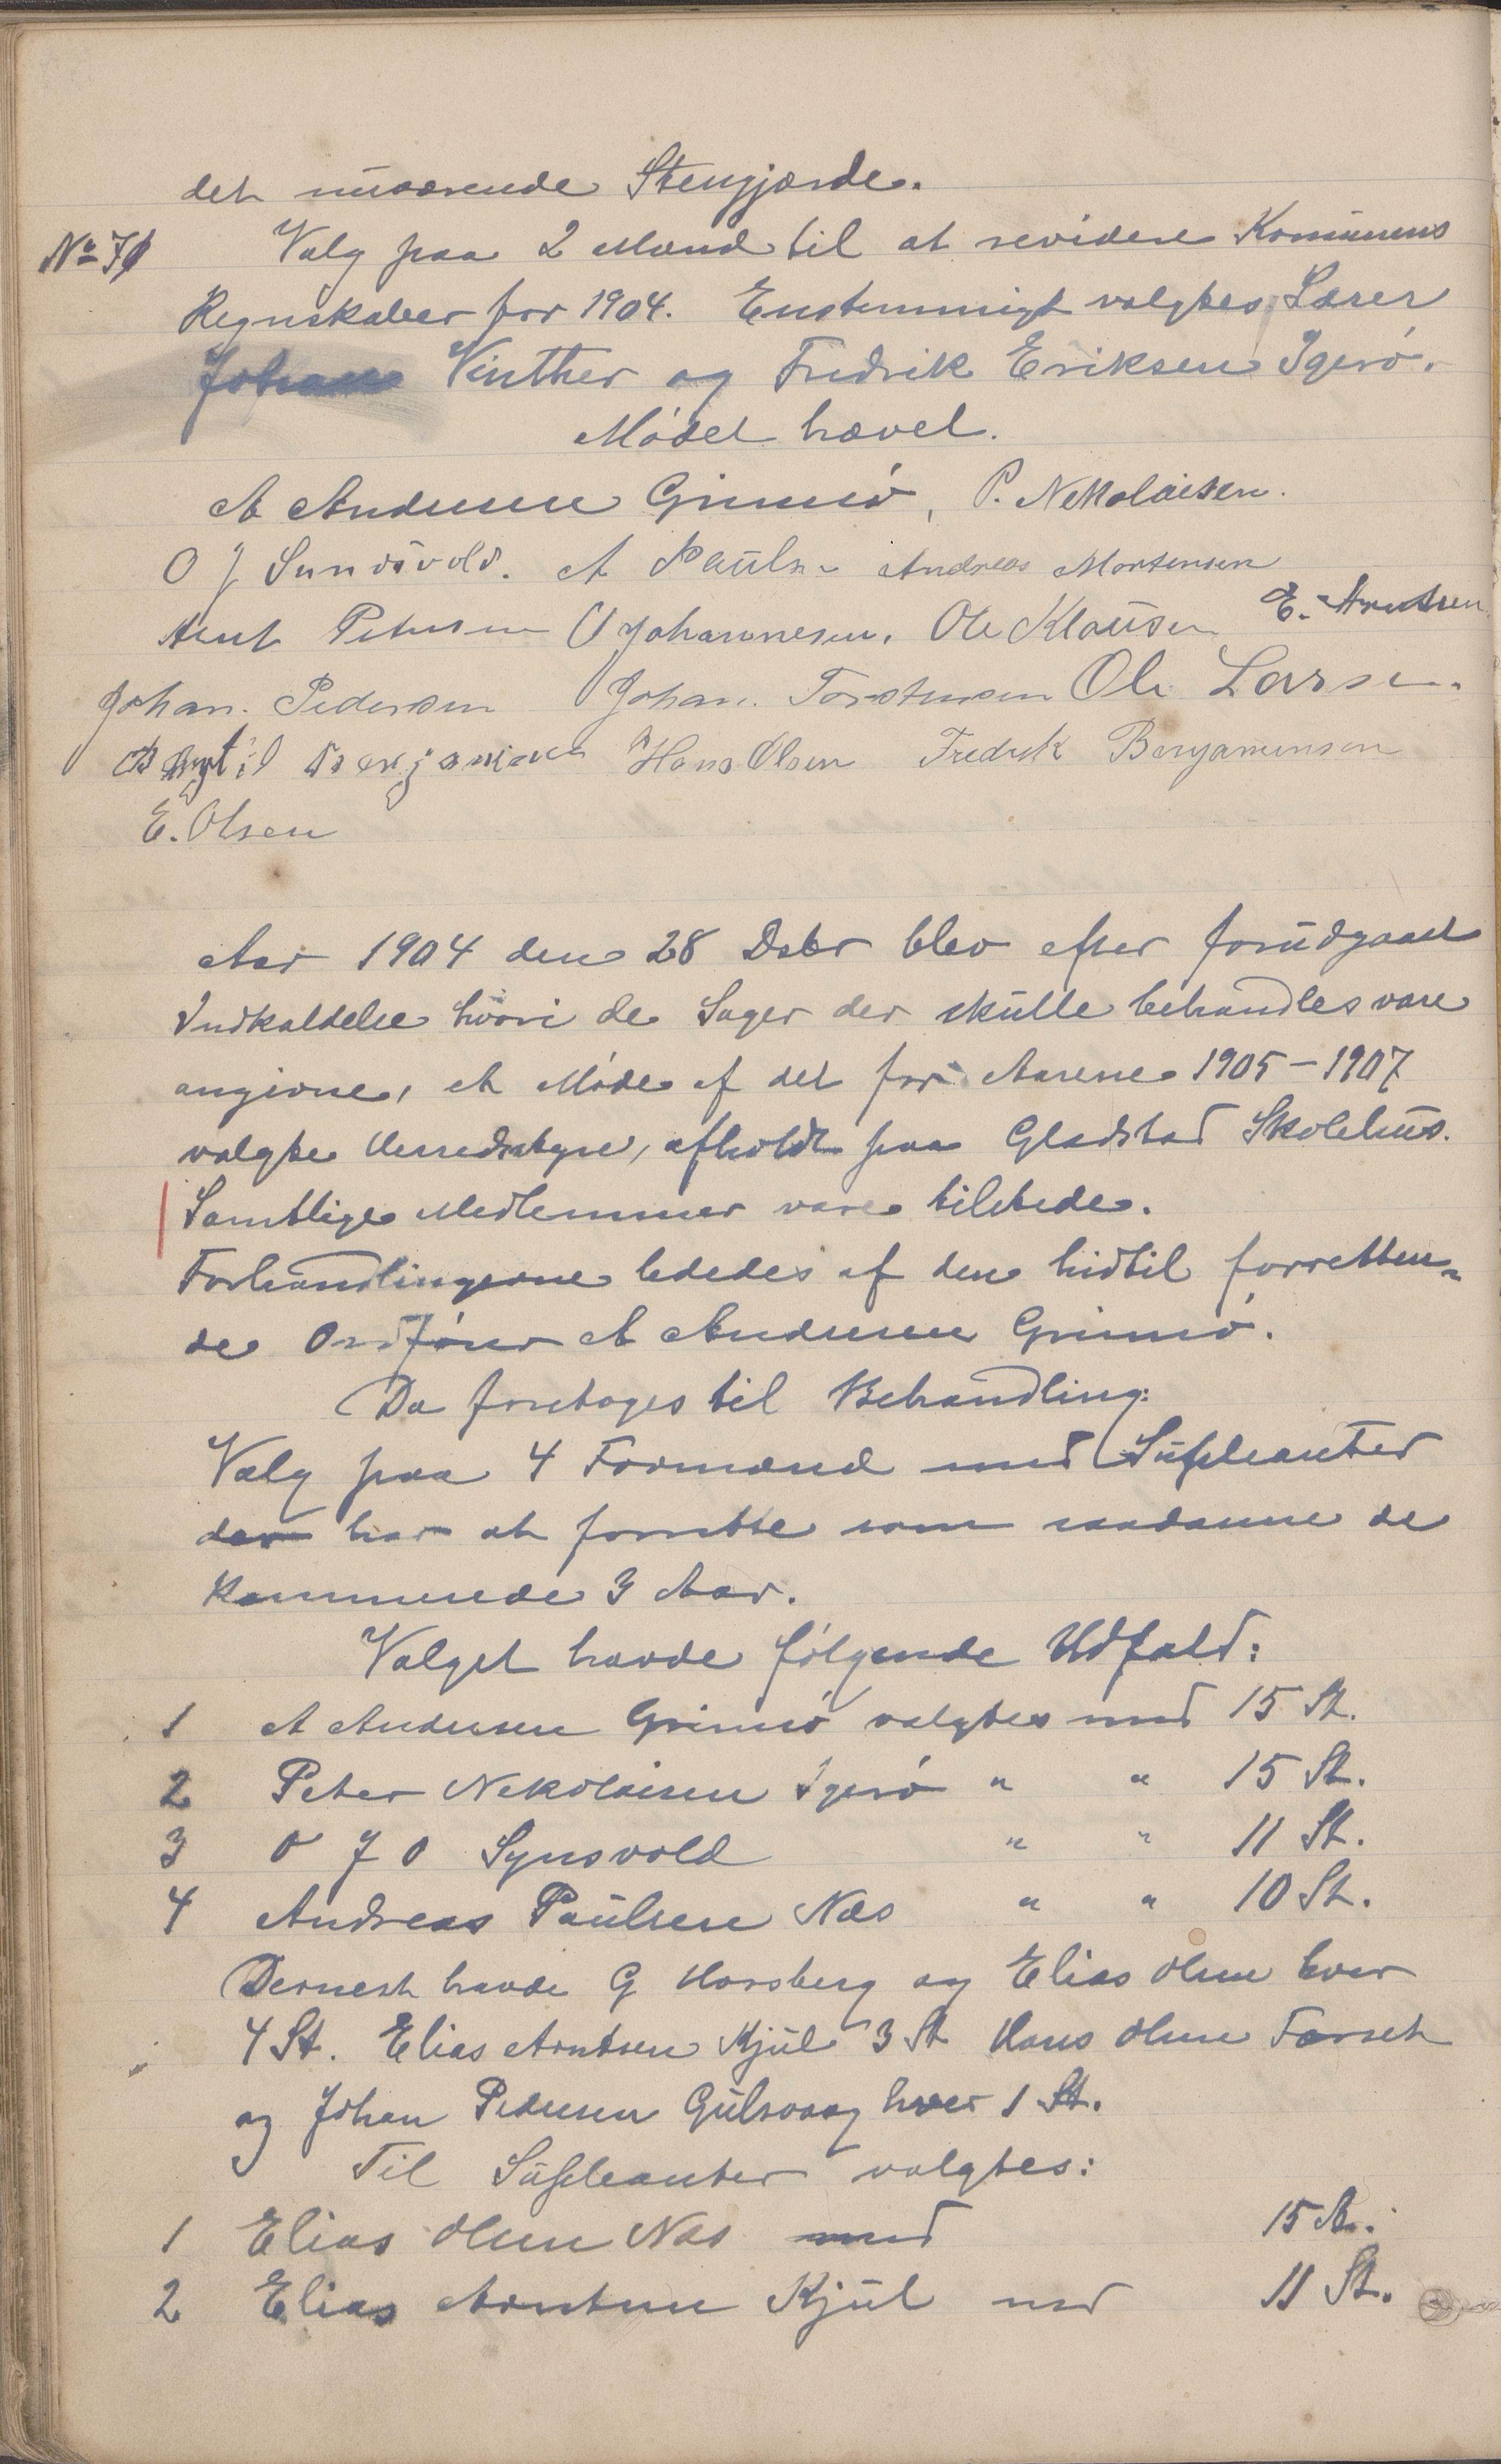 det nuværende Stengjærde.
No 70 Valg paa 2 Mænd til at revidere Komunens
Regnskaber for 1904. Enstemmigt valgtes Lærer
Johan Vinther og Fredrik Eriksen Igerø.
Mødet hævet.
A Andersen Grimsø, P. Nekolaisen.
O J Sundsvold. A Pauls Andreas Mortensen
Arnt Petersen O Johannesen. Ole Klausen E. Arntsen
Johan. Pedersen Johan. Torstensen Ole Larsen.
Bengt Benjaminsen Hans Olsen Fredrik Benjaminsen
E. Olsen
Aar 1904 den 28 Dsbr blev efter forudgaaet
Indkaldelse hvori de Sager der skulle behandles vare
angivne, et Møde af det for Aarene 1905-1907
valgte Herredsstyre, afholdt paa Gladstad Skolehus.
Samtlige Medlemmer vare tilstede.
Forhandlingerne lededes af den hidtil forretten-
de Ordfører A Andersen Grimsø.
Da foretoges til Behandling:
Valg paa 4 Formænd med Supleanter
der har at forrette som saadanne de
kommende 3 Aar.
Valget havde følgende Udfald:
1 A Andersen Grimsø valgtes med 15 St.
2 Peter Nekolaisen Igerø " " 15 St.
3 O J O Synsvold " " 11 St.
4 Andreas Paulsen Næs " " 10 St.
Dernest havde G Horsberg og Elias Olsen hver
4 St. Elias Arntsen Kjul 3 St Hans Olsen Farset
og Johan Pedersen Gulsvaag hver 1 St.
Til Supleanter valgtes:
1 Elias Olsen Næs med 15 St.
2 Elias Arntsen Kjul med 11 St.